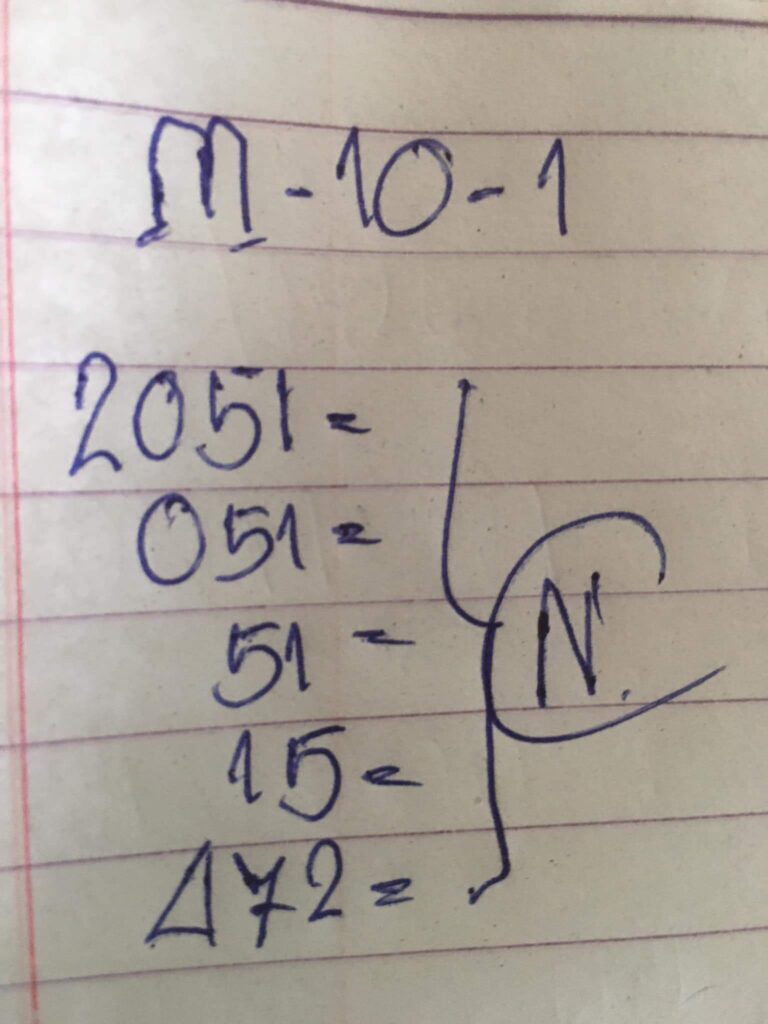 M-10-1
2051=
051=
51=
15=
Δ72=
N.